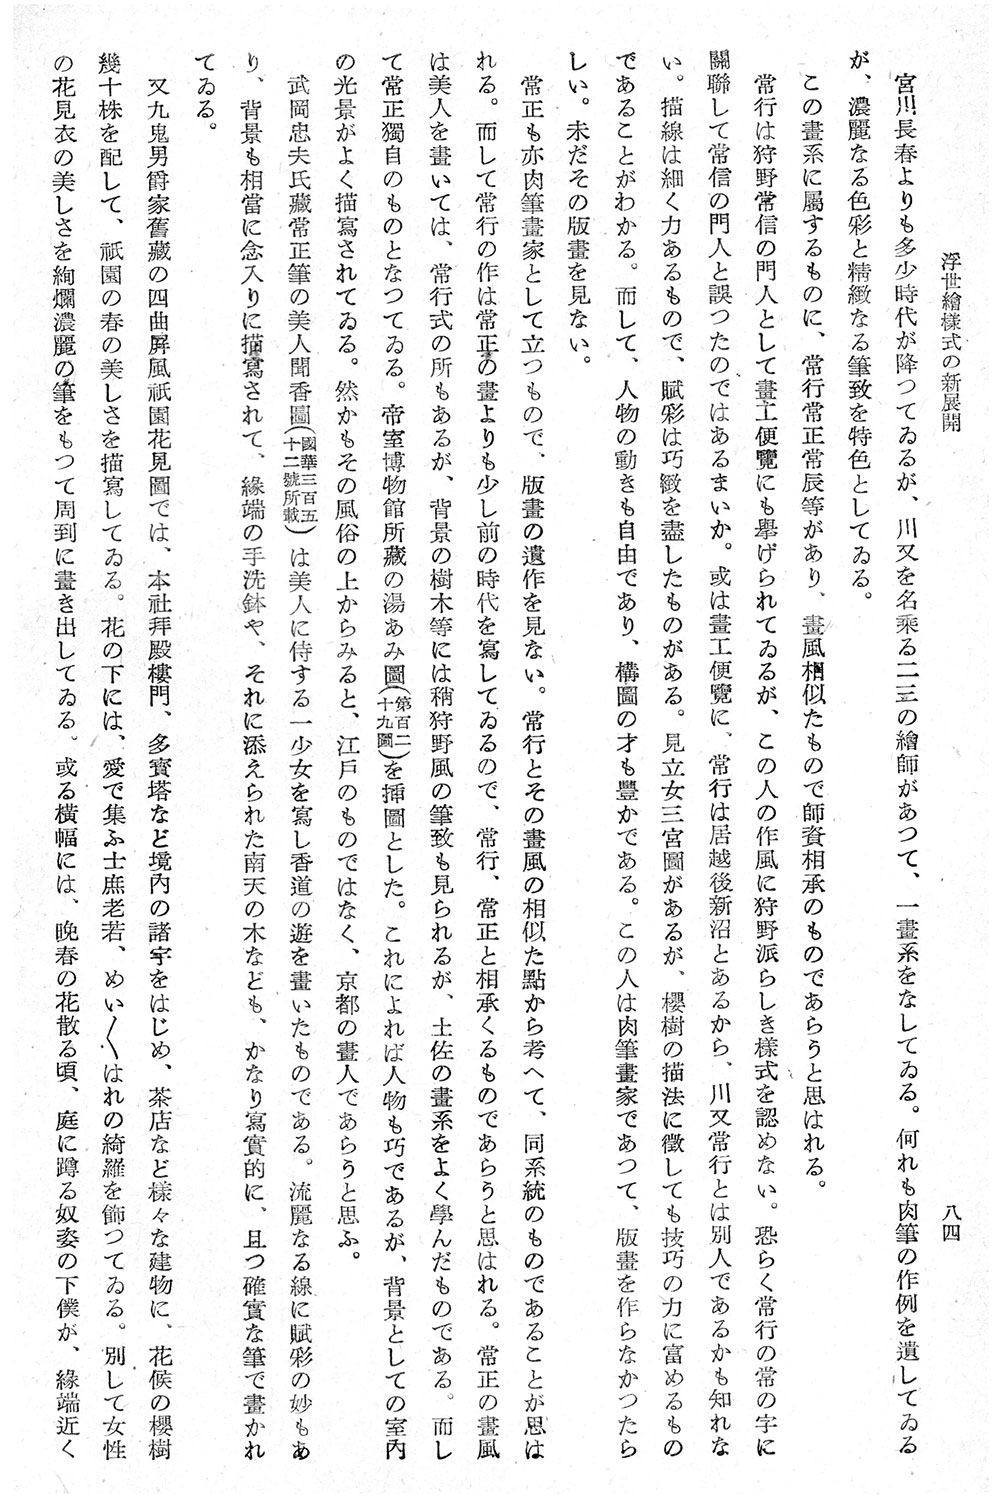 浮世繪樣式の新展開
八四
宮川長春よりも多少時代が降つてゐるが、川又を名乘る二三の繪師があつて、一畫系をなしてゐる。何れも肉筆の作例を遺してゐる
が、濃麗なる色彩と精緻なる筆致を特色としてゐる。
この畫系に屬するものに、常行常正常辰等があり、畫風相似たもので師資相承のものであらうと思はれる。
常行は狩野常信の門人として畫工便覽にも擧げられてゐるが、この人の作風に狩野派らしき樣式を認めない。恐らく常行の常の字に
關聯して常信の門人と誤つたのではあるまいか。或は畫工便覽に、常行は居越後新沼とあるから、川又常行とは別人であるかも知れな
い。描線は細く力あるもので、賦彩は巧緻を盡したものがある。見立女三宮圖があるが、櫻樹の描法に徵しても技巧の力に富めるもの
であることがわかる。而して、人物の動きも自由であり、構圖の才も豐かである。この人は肉筆畫家であつて、版畫を作らなかつたら
しい。未だその版畫を見ない。
常正も亦肉筆畫家として立つもので、版畫の遺作を見ない。常行とその畫風の相似た點から考へて、同系統のものであることが思は
れる。而して常行の作は常正の畫よりも少し前の時代を寫してゐるので、常行、常正と相承くるものであらうと思はれる。常正の畫風
は美人を畫いては、常行式の所もあるが、背景の樹木等には稍狩野風の筆致も見られるが、土佐の畫系をよく學んだものである。而し
て常正獨自のものとなつてゐる。帝室博物館所藏の湯あみ圖(第百二十九圖)を揷圖とした。これによれば人物も巧であるが、背景としての室內
の光景がよく描寫されてゐる。然かもその風俗の上からみると、江戶のものではなく、京都の畫人であらうと思ふ。
武岡忠夫氏藏常正筆の美人聞香圖(國華三百五十二號所載)は美人に侍する一少女を寫し香道の遊を畫いたものである。流麗なる線に賦彩の妙もあ
り、背景も相當に念入りに描寫されて、緣端の手洗鉢や、それに添えられた南天の木なども、かなり寫實的に、且つ確實な筆で畫かれ
てゐる。
又九鬼男爵家舊藏の四曲屏風祇園花見圖では、本社拜殿樓門、多寶塔など境內の諸宇をはじめ、茶店など樣々な建物に、花候の櫻樹
幾十株を配して、祇園の春の美しさを描寫してゐる。花の下には、愛で集ふ士庶老若、めい〱はれの綺羅を飾つてゐる。別して女性
の花見衣の美しさを絢爛濃麗の筆をもつて周到に畫き出してゐる。或る橫幅には、晚春の花散る頃、庭に蹲る奴姿の下僕が、緣端近く